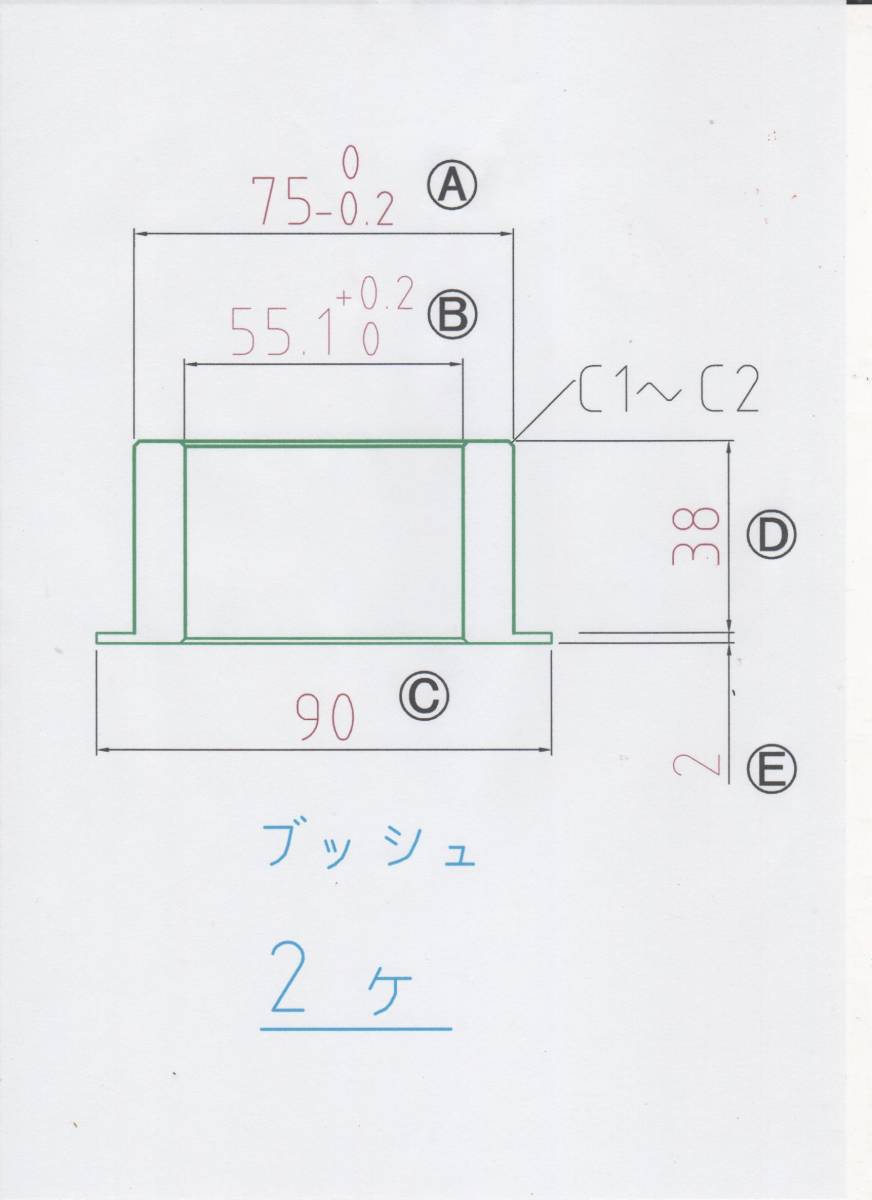 0
75-0.2 Ⓐ
+0.2
55.1 0 Ⓑ
C1～C2
38 Ⓓ
90 Ⓒ
2 Ⓔ
ブッシュ
2ケ